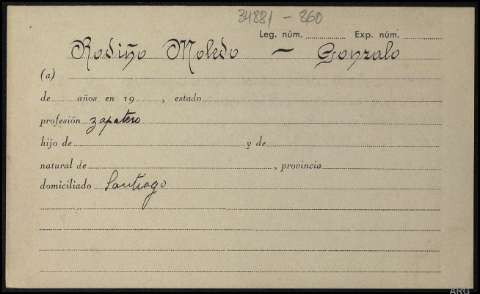 34881 - 860
Leg. núm. Exp. núm.
Rodiño Moledo — Gonzalo
(a)
de años en 19 , estado
profesión zapatero
hijo de y de
natural de , provincia
domiciliado Santiago
ARG